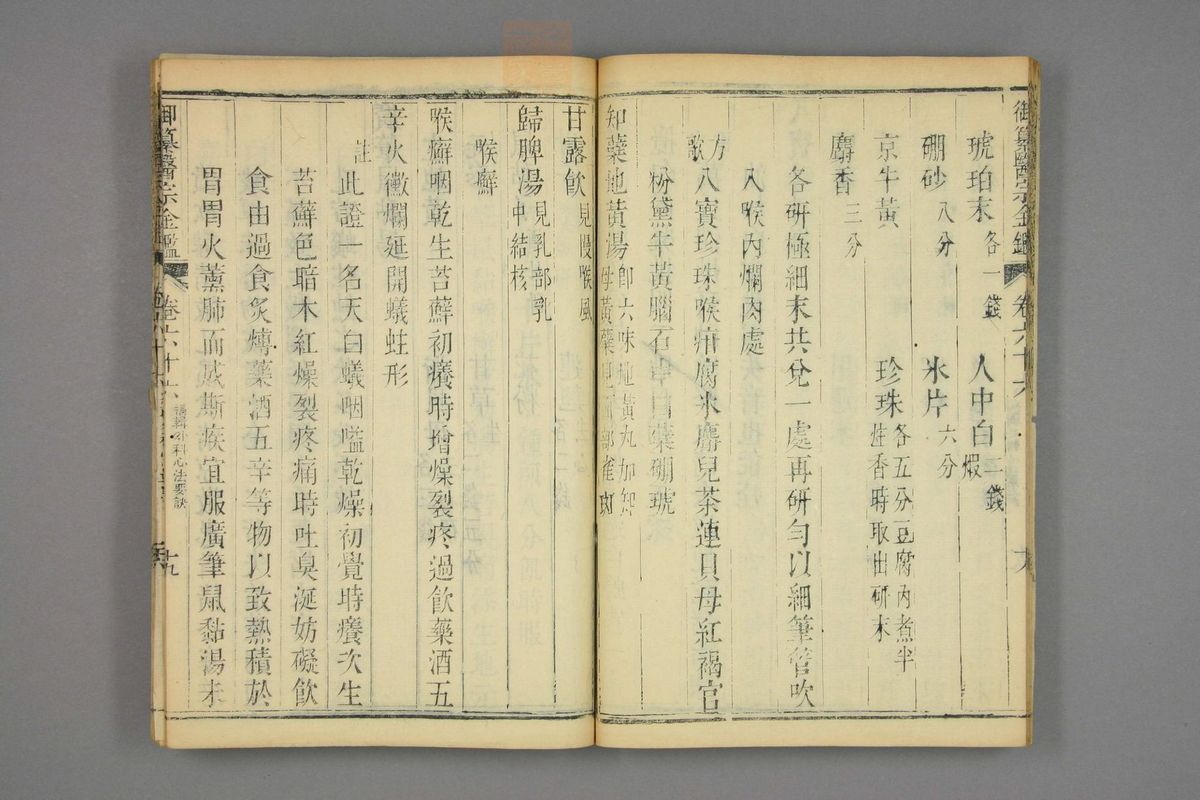 御纂醫宗金鑑 卷六十六 十八
琥珀末各一錢 人中白煅二錢
硼砂八分 氷片六分
京牛黃 珍珠各五分豆腐內煮半炷香時取出研末
麝香三分
各研極細末共兌一處再研勻以細筆管吹
入喉內爛肉處
方歌 八寶珍珠喉疳腐氷麝兒茶連貝母紅褐官
粉黛牛黃腦石
硼琥
知蘗地黃湯卽六味地黃丸加知母黃蘗見
部雀斑
甘露飮見慢喉風
歸脾湯見乳部乳中結核
喉癬
喉癬咽乾生苔蘚初癢時增燥裂疼過飮藥酒五
辛火黴爛延開蟻蛀形
註 此證一名天白蟻咽嗌乾燥初覺時癢次生
苔蘚色暗木紅燥裂疼痛時吐臭涎妨礙飮
食由過食炙煿藥酒五辛等物以致熱積於
胃胃火薰肺而成斯疾宜服廣筆鼠黏湯未
御纂醫宗金鑑 卷六十六 編輯外科心法要訣 十九